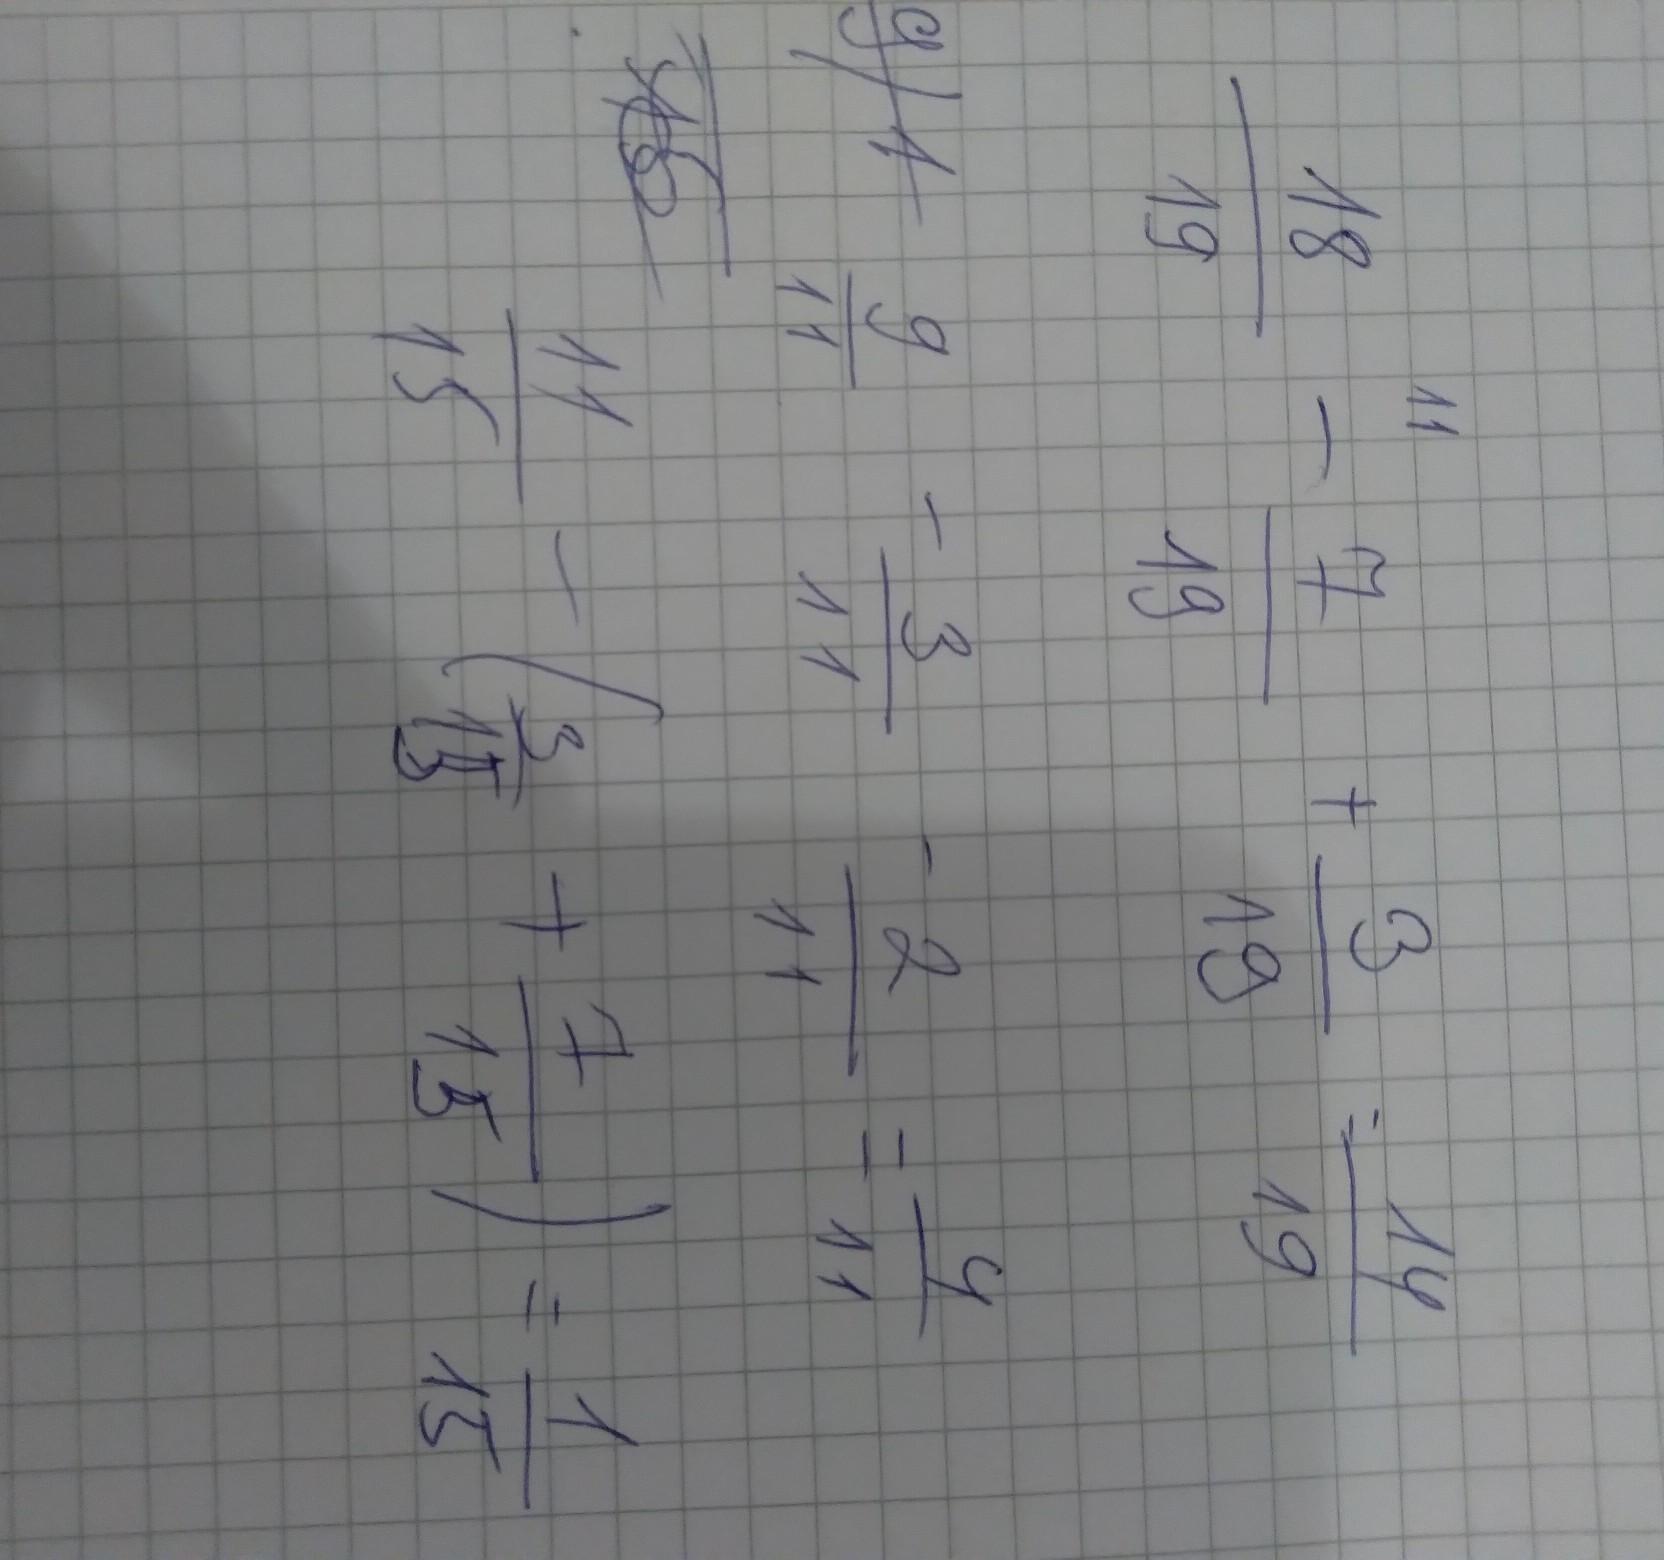 11
18/19 - 7/19 + 3/19 = 14/19
9/11 - 3/11 - 2/11 = 4/11
11/15 - (3/15 + 7/15) = 1/15